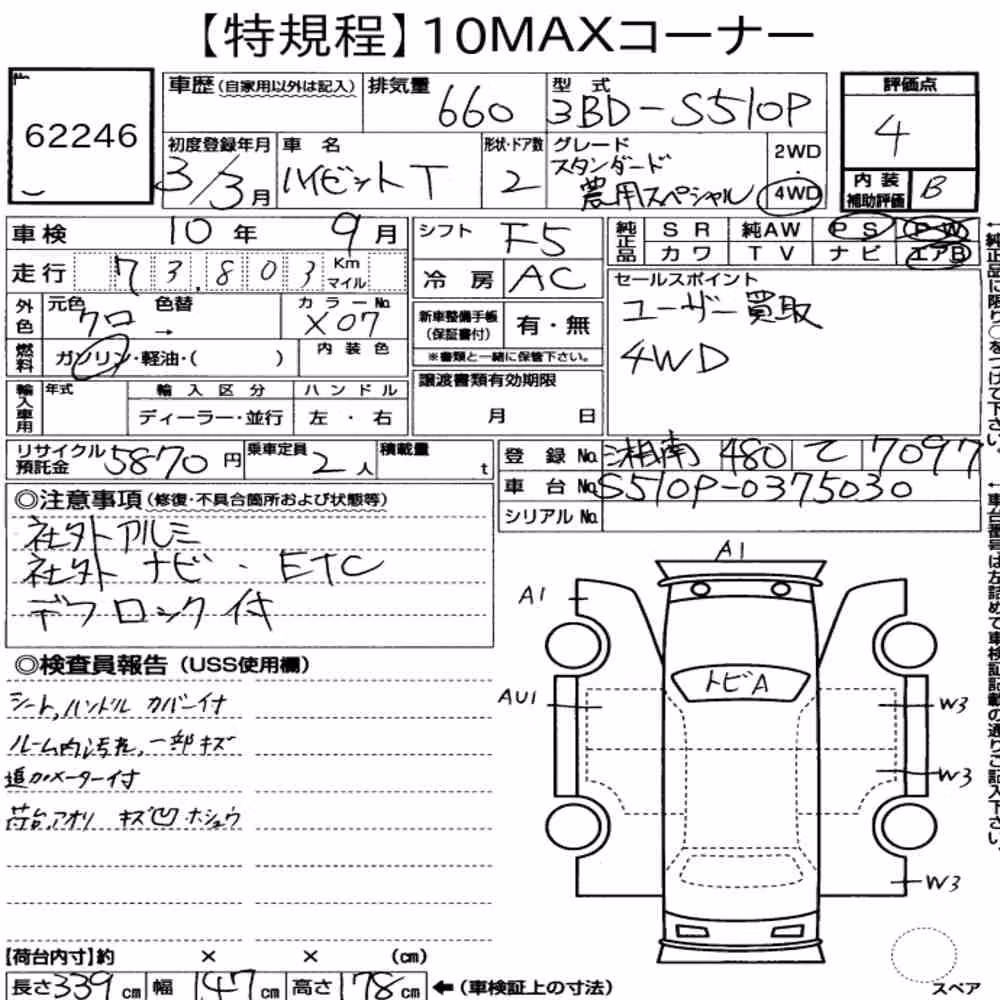 【特規程】10MAXコーナー
62246
車歴(自家用以外は記入) 排気量 660 型式 3BD-S510P
初度登録年月 3/3月 車名 ハイゼットT 形状・ドア数 2 グレード スタンダード 農用スペシャル 2WD・4WD
評価点 4
内装補助評価 B
車検 10年 9月
走行 73,803 Km マイル
外色 元色 クロ 色替 → カラーNo. X07
燃料 ガソリン・軽油・( ) 内装色
輸入車用 年式 輸入区分 ディーラー・並行 ハンドル 左・右
シフト F5
冷房 AC
新車整備手帳(保証書付) 有・無
※書類と一緒に保管下さい。
譲渡書類有効期限 月 日
純正品 SR 純AW PS PW
カワ TV ナビ エアB
セールスポイント
ユーザー買取
4WD
リサイクル預託金 5870円 乗車定員 2人 積載量 t
登録No. 湘南 480 て 7097
車台No. S510P-0375030
シリアルNo.
◎注意事項(修復・不具合箇所および状態等)
社外アルミ
社外ナビ・ETC
デフロック付
◎検査員報告(USS使用欄)
シート,ハンドルカバー付
ルーム内汚れ,一部キズ
追加メーター付
荷台,アオリ キズ凹ホシュウ
A1
A1
トビA
AU1
W3
W3
W3
スペア
【荷台内寸】約 × × (cm)
長さ339cm 幅147cm 高さ178cm ←(車検証上の寸法)
←純正品に限り○をつけて下さい。
←車台番号は左詰めで車検証記載の通りご記入下さい。